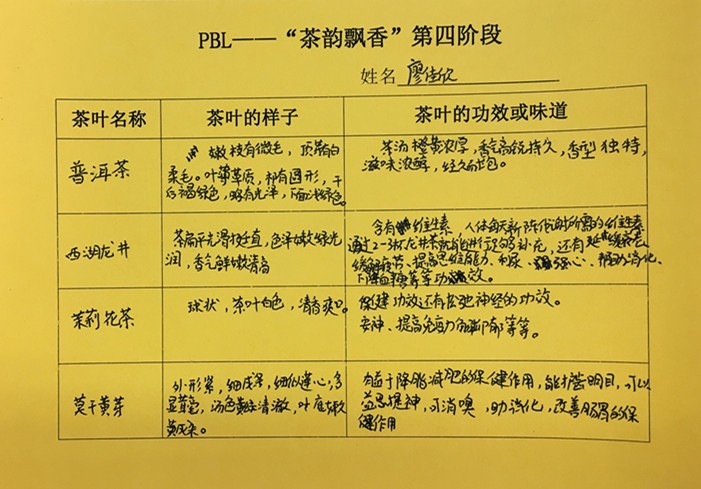 PBL——“茶韵飘香”第四阶段
姓名 廖佳欣
茶叶名称 茶叶的样子 茶叶的功效或味道
普洱茶
嫩枝有微毛，顶芽有白
柔毛。叶薄革质，椭圆形，干
后褐绿色，略有光泽，下面浅绿色。
茶汤橙黄浓厚，香气高锐持久，香型独特，
滋味浓醇，经久耐泡。
西湖龙井
茶扁平光滑挺直，色泽嫩绿光
润，香气鲜嫩清高
含有维生素，人体每天新陈代谢所需的维生素
通过2-3杯龙井茶就能进行足够补充，还有延缓衰老
缓解疲劳、提高思维能力、利尿、强心、帮助消化、
下降血糖等等功效。
茉莉花茶
球状，茶叶白色，清香爽口。
保健功效还有松弛神经的功效。
安神、提高免疫力和解郁等等。
莫干黄芽
外形紧，细成条，细似莲心，多
显茸毫，汤色黄绿清澈，叶底嫩
黄成朵。
有益于降脂减肥的保健作用，能护齿明目，可以
益思提神，可消嗅，助消化，改善肠胃的保
健作用